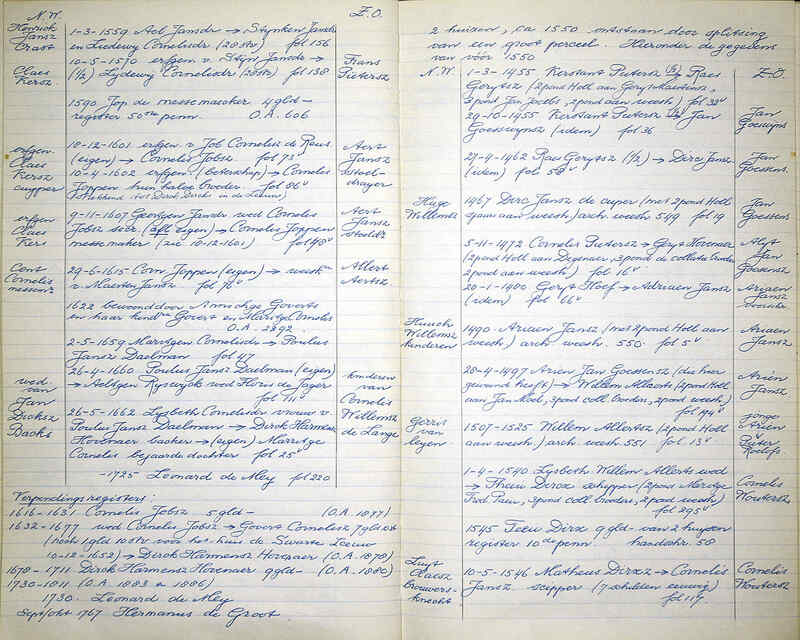 N.W. Z.O.
Henrick Jansz Crast
1-3-1559 Ael Jansdr → Stijnken Jansdr
en Liedewy Cornelisdr (28str) fol 156
10-5-1570 erfgen v. Stijn Jansdr → Frans
Claes Kersz. (1/2) Lydewy Cornelisdr (28str) fol 138 Pietersz
1590 Jop de messemaecker 4 gld –
register 50ste penn. O.A. 606
erfgen. Claes Kersz cuyper
18-12-1601 erfgen v Job Cornelis de Raus Aert
(eigen) → Cornelis Jobsz. fol 75 Jansz
10-4-1602 erfgen (beterschap) → Cornelis stoel-
Joppen hun halve broeder. fol 86v drayer
erfgen Claes Kers
9-11-1607 Georgen Jansdr wed Cornelis Aert
Jobsz soer. (eigen) → Cornelis Joppen Jansz
messemaker (zie 18-12-1601) fol 90v stoeldr
Cent Cornelisz
29-6-1615 Corn Joppen (eigen) → weeskn Allert
v. Maerten Jansz fol 70v Aertsz
1622 bewoond door Annichge Goverts
en haar kindn Govert en Marritge Cornelis
O.A. 2892
2-5-1659 Marritgen Cornelisdr → Poulus
Jansz Daelman fol 47
26-4-1660 Poulus Jansz Daelman (eigen) kinderen
wed. van → Aeltgen Ryswyck wed Floris de Jager van
Jan fol 11v Cornelis
Dircksz 26-5-1662 Lysbeth Cornelisdr vrouw v. Willemsz
Backs Poulus Jansz Daelman → Dirck Harmensz de Lange
Hovenaer backer → (eigen) Marritge
Cornelis bejaarde dochter fol 25v
-1725 Leonard de Mey fol 220
Verpondingsregisters:
1616-1631 Cornelis Jobsz 5 gld – (O.A. 1877)
1632-1677 wed Cornelis Jobsz → Govert Cornelisz 7 gld 10st
(noch 1 gld 10 str voor het huis de Swarte Leeuw
10-12-1652) → Dirck Harmensz Hovenaer (O.A. 1878)
1678-1711 Dirck Harmensz Hovenaer 9 gld – (O.A. 1880)
1730-1811 (O.A. 1883 en 1886)
1730. Leonard de Mey
sept/okt 1767 Hermanus de Groot
2 huizen, ca 1550 ontstaan door splitsing
van een groot perceel. Hieronder de gegevens
van vóór 1550
N.W. 1-3-1455 Kerstant Pietersz (1/2) → Raes Z.O.
Gerytsz (2 pond Holl aan Geryt Martensz,
3 pond Jan Jacobs, 2 pond aan weesh) fol 32v Jan
29-10-1455 Kerstant Pietersz → Jan Goeswijns
Goeswynsz (idem) fol 36
29-4-1462 Raes Gerytsz (1/2) → Dirc Jansz Jan
(idem) fol 58v Goessens.
Huge Willemsz
1467 Dirc Jansz de cuper (met 2 pond Jan
aan weesh) arch weesh 549 fol 19 Goessens
5-11-1472 Cornelis Pietersz → Geryt Hovenaer Alyt
(2 pond Holl aan Degenaer, 3 pond de collatie broeders Jan
2 pond aan weesh) fol 16v Goessensz
20-1-1480 Geryt Hoef → Adriaen Jansz Ariaen
(idem) fol 66v Jansz
Huuch Willemsz kinderen
1490 Ariaen Jansz (met 2 pond Holl aan Ariaen
weesh) arch weesh. 550. fol 5v Jansz
28-4-1497 Arien Jan Goessensz (die hier Ariën
gewoond heeft) → Willem Allaerts (2 pond Holl Jansz
aan Jan Noel, 3 pond coll broeders, 2 pond weesh)
fol 94v
Gerrit van leyen.
1507-1525 Willem Allertsz (2 pond Holl jonge
aan weesh) arch. weesh. 551 fol 13v Ariën
Pieter
Roelofs.
1-4-1540 Lysbeth Willem Allerts wed Cornelis
→ Theeu Dircx schipper (2 pond Woutersz
3 pond coll broeders, 2 pond weesh)
fol 295v
1545 Teeu Dirx 9 gld – van 2 huysen
register 10de penn. handschr. 58
Luyt Claesz brouwers-knecht
10-5-1546 Matheus Dirxsz → Cornelis Cornelis
Jansz. scipper (7 schilden eeuwig) Woutersz
fol 117.